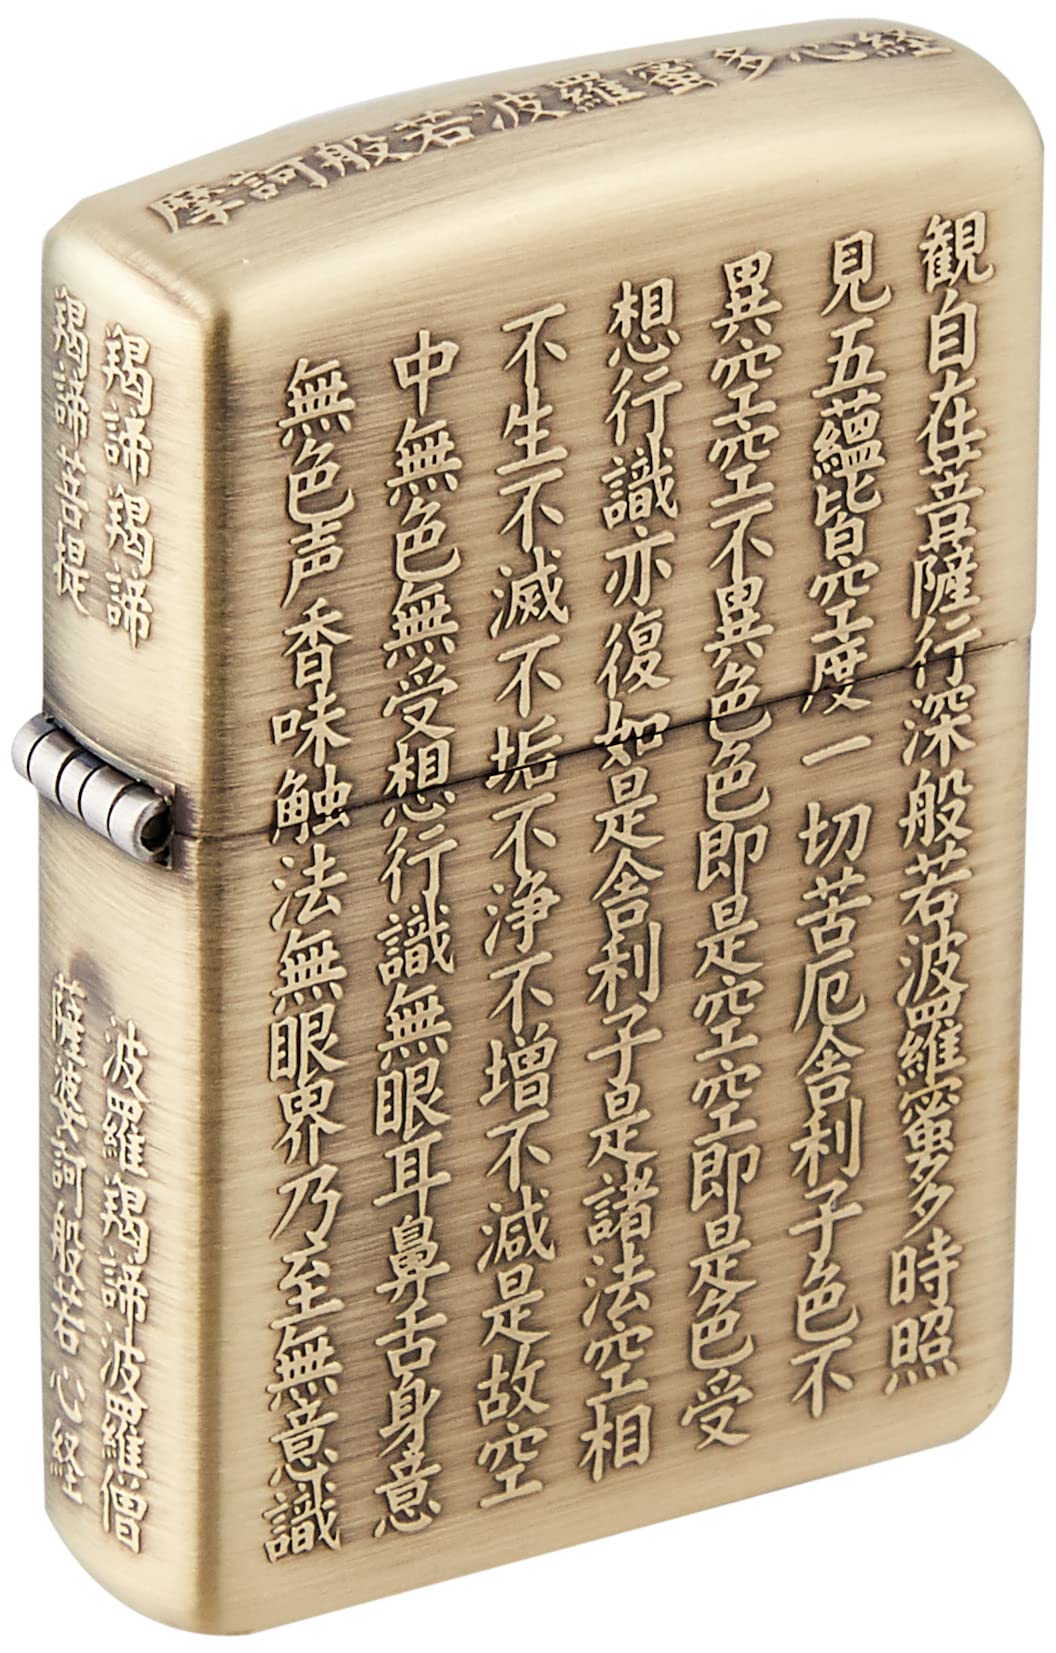 摩訶般若波羅蜜多心経
観自在菩薩行深般若波羅蜜多時照
見五蘊皆空度一切苦厄舎利子色不
異空空不異色色即是空空即是色受
想行識亦復如是舎利子是諸法空相
不生不滅不垢不浄不増不減是故空
中無色無受想行識無眼耳鼻舌身意
無色声香味触法無眼界乃至無意識
羯諦羯諦
波羅羯諦波羅僧
羯諦菩提
薩婆訶般若心経